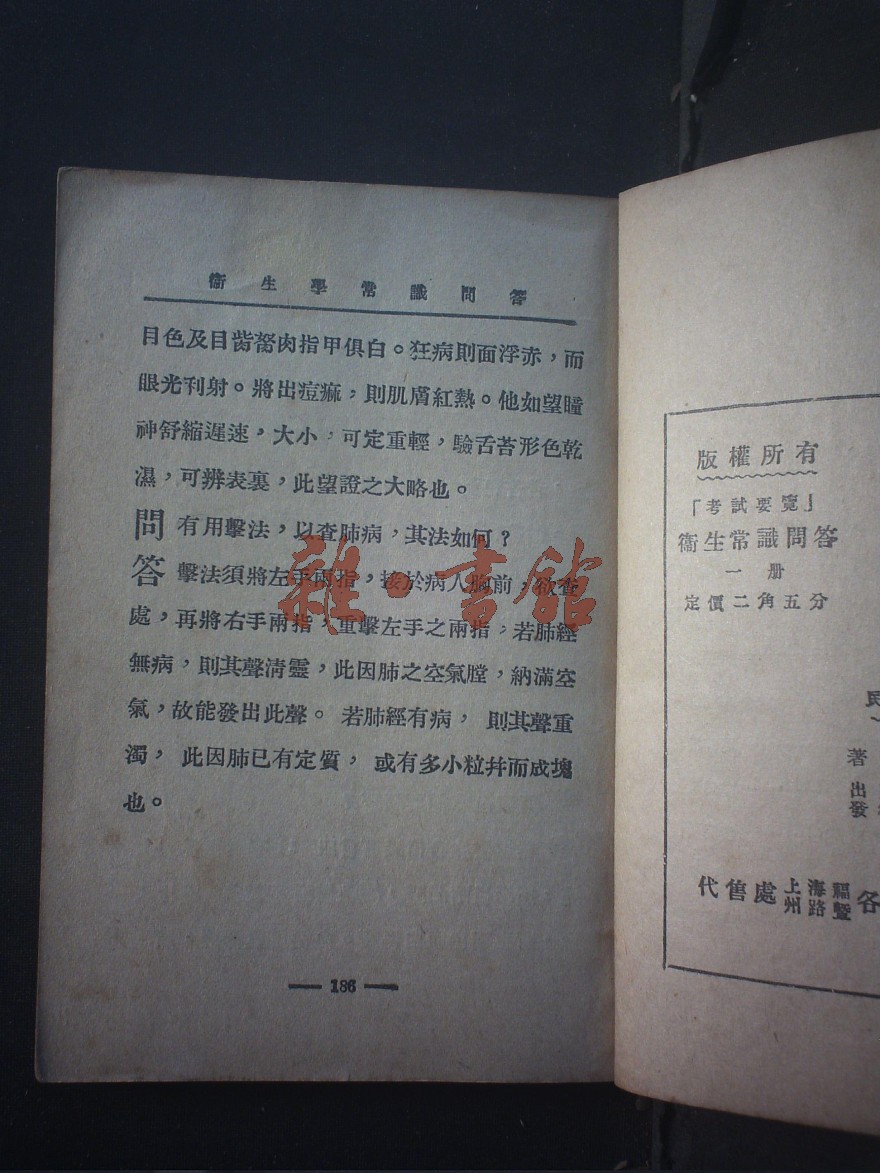 衞生學常識問答
目色及目眥胬肉指甲俱白。狂病則面浮赤，而
眼光刊射。將出痘痲，則肌膚紅熱。他如望瞳
神舒縮遲速，大小，可定重輕，驗舌苔形色乾
濕，可辨表裏，此望證之大略也。
問 有用擊法，以查肺病，其法如何？
答 擊法須將左手兩指，按於病人胸前，欲查
處，再將右手兩指，重擊左手之兩指，若肺經
無病，則其聲淸靈，此因肺之空氣膛，納滿空
氣，故能發出此聲。若肺經有病，則其聲重
濁，此因肺已有定質，或有多小粒幷而成塊
也。
— 186 —
雜·書館
版權所有
「考試要覽」
衞生常識問答
一册
定價二角五分
民
著
出
發
代售處上海福
州路曁各